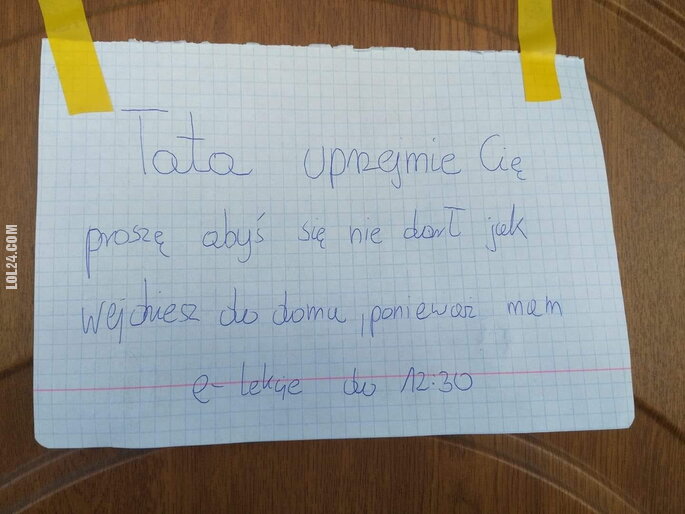 Tata uprzejmie Cię
proszę abyś się nie darł jak
wejdziesz do domu, ponieważ mam
e-lekcje do 12:30
LOL24.COM